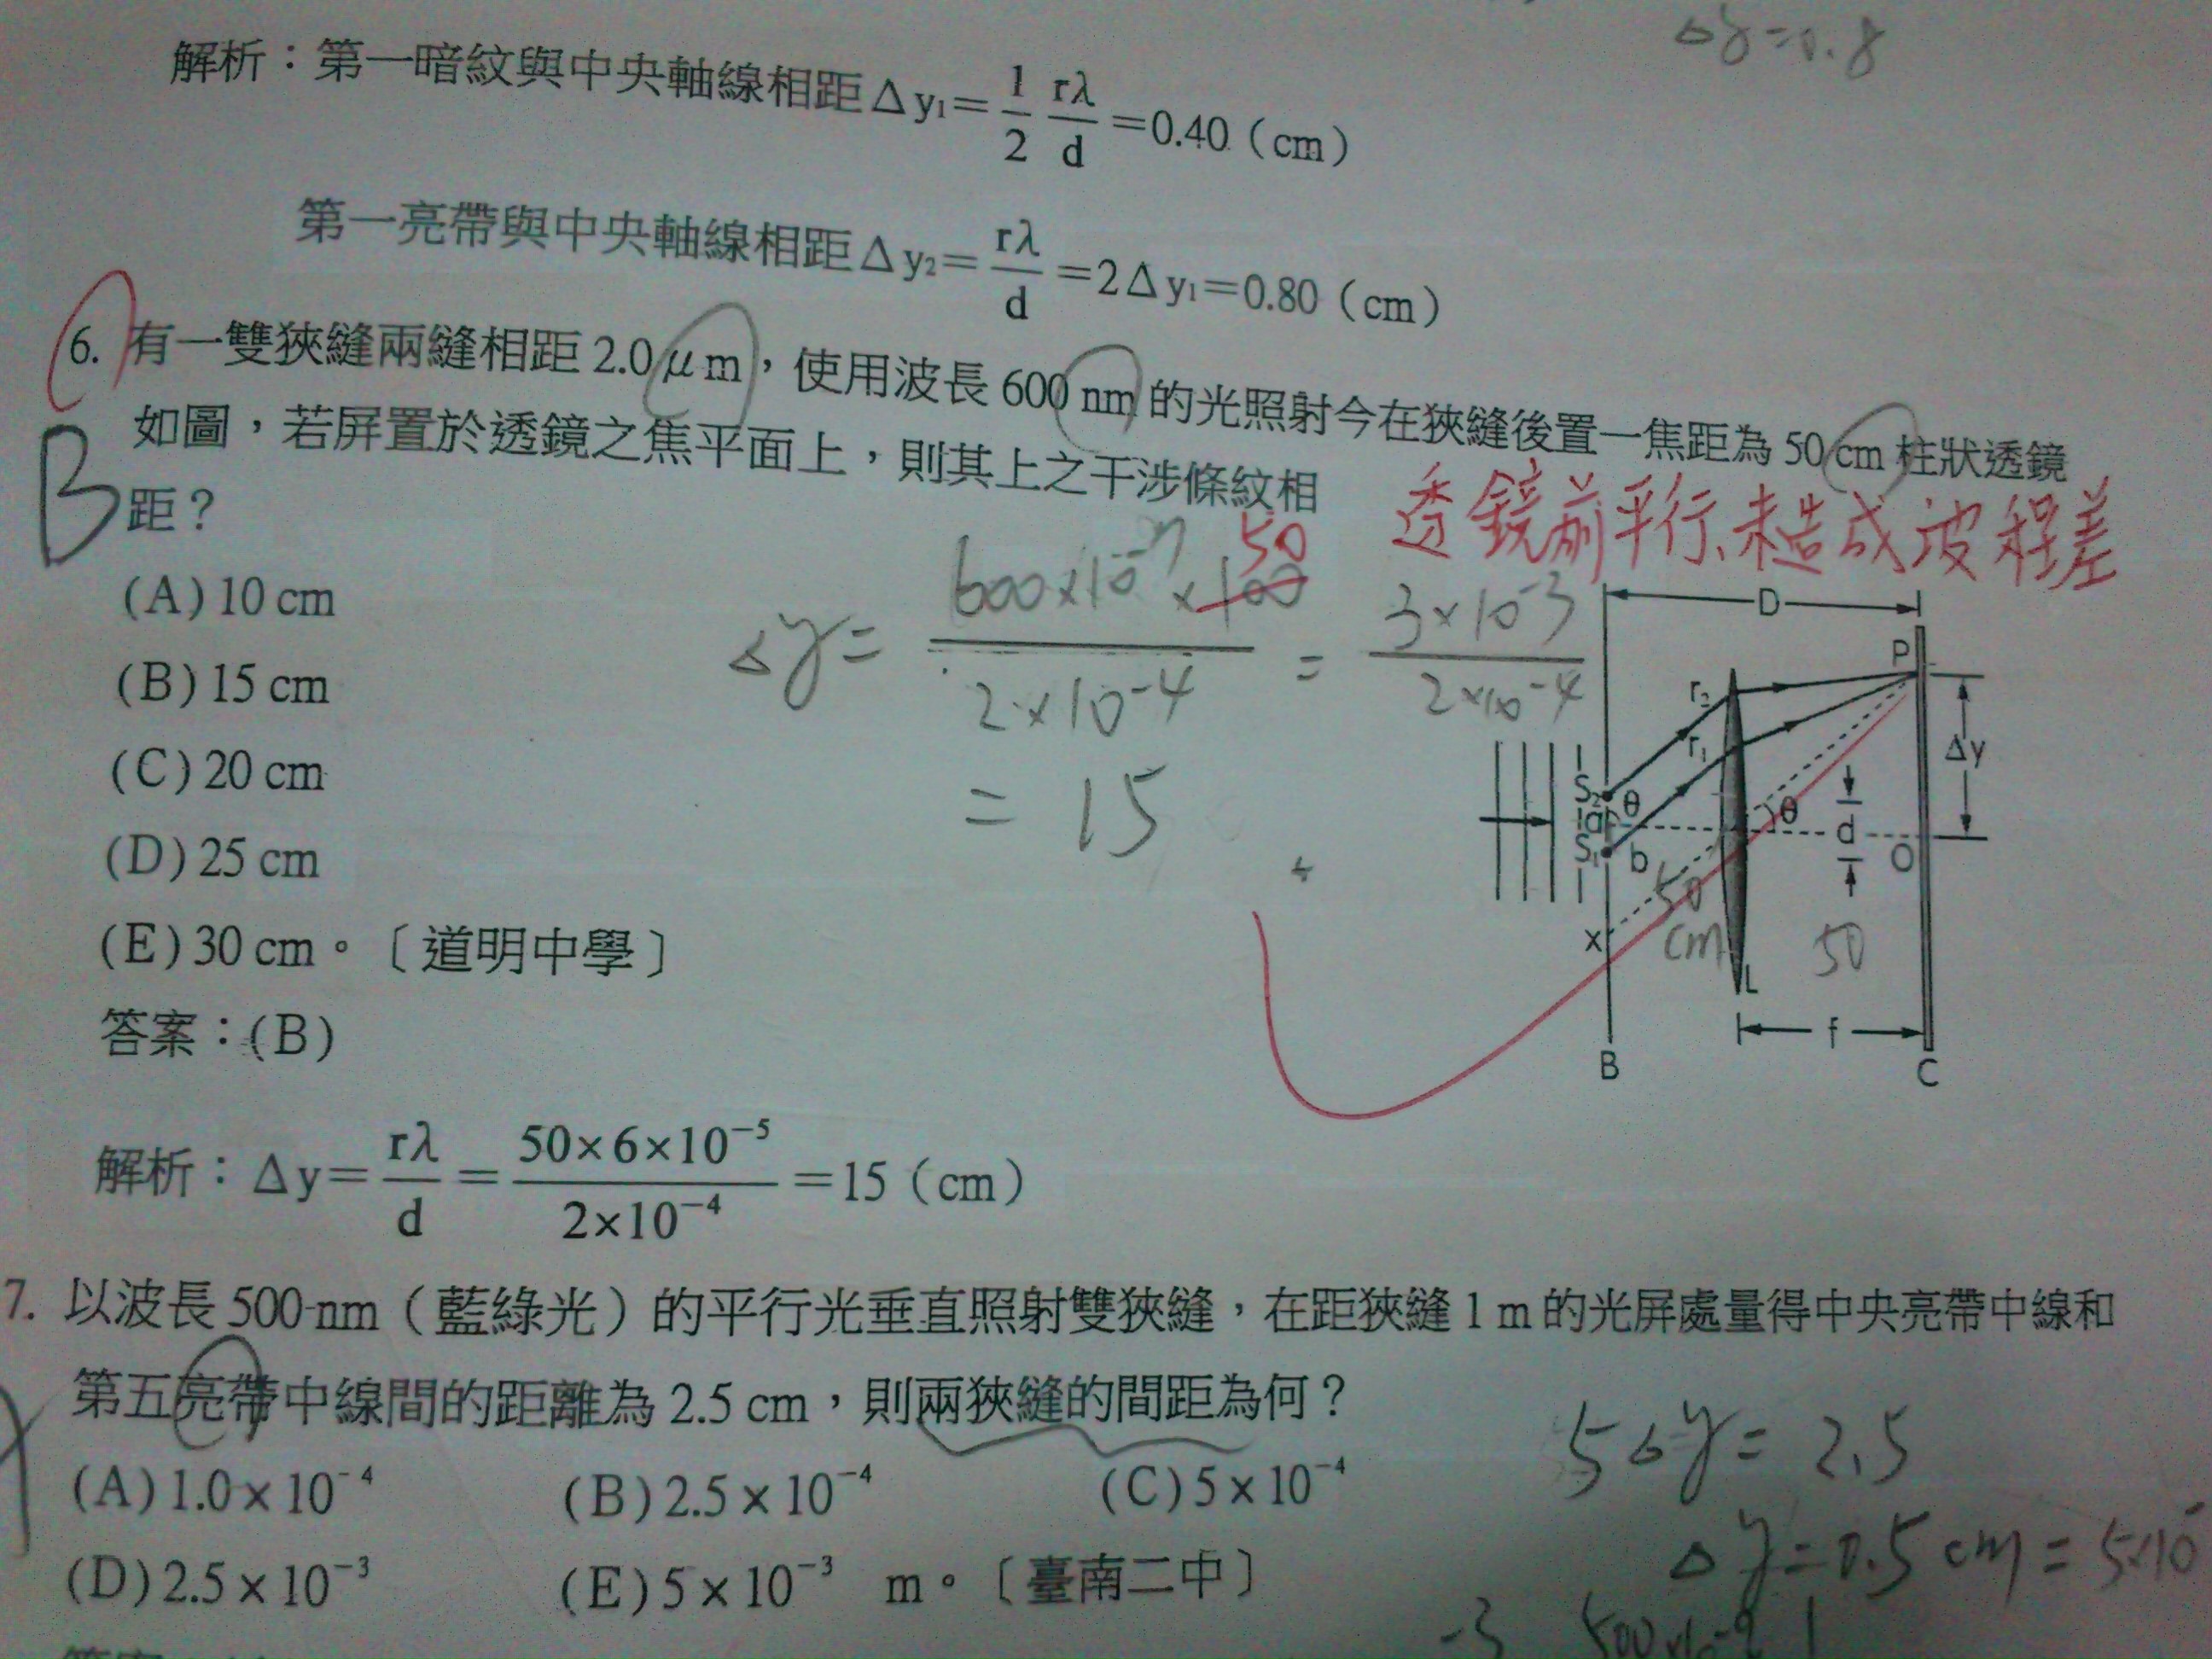 Δy=0.8
解析：第一暗紋與中央軸線相距Δy₁= 1/2 rλ/d =0.40（cm）
第一亮帶與中央軸線相距Δy₂= rλ/d =2Δy₁=0.80（cm）
6. 有一雙狹縫兩縫相距 2.0 μm，使用波長 600 nm 的光照射今在狹縫後置一焦距為 50 cm 柱狀透鏡
如圖，若屏置於透鏡之焦平面上，則其上之干涉條紋相
B
距？
透鏡前平行、未造成波程差
(A) 10 cm
(B) 15 cm
(C) 20 cm
(D) 25 cm
(E) 30 cm。〔道明中學〕
50
Δy= 600×10⁻⁷×100 / 2×10⁻⁴ = 3×10⁻³ / 2×10⁻⁴
= 15
D
P
r₂
r₁
Δy
S₂
θ
a
θ
d
S₁
b
O
50
cm
50
x
L
f
B
C
答案：(B)
解析：Δy= rλ/d = 50×6×10⁻⁵ / 2×10⁻⁴ =15（cm）
7. 以波長 500 nm（藍綠光）的平行光垂直照射雙狹縫，在距狹縫 1 m 的光屏處量得中央亮帶中線和
第五亮帶中線間的距離為 2.5 cm，則兩狹縫的間距為何？
(A) 1.0×10⁻⁴ (B) 2.5×10⁻⁴ (C) 5×10⁻⁴
(D) 2.5×10⁻³ (E) 5×10⁻³ m。〔臺南二中〕
5Δy= 2.5
Δy=0.5 cm = 5×10